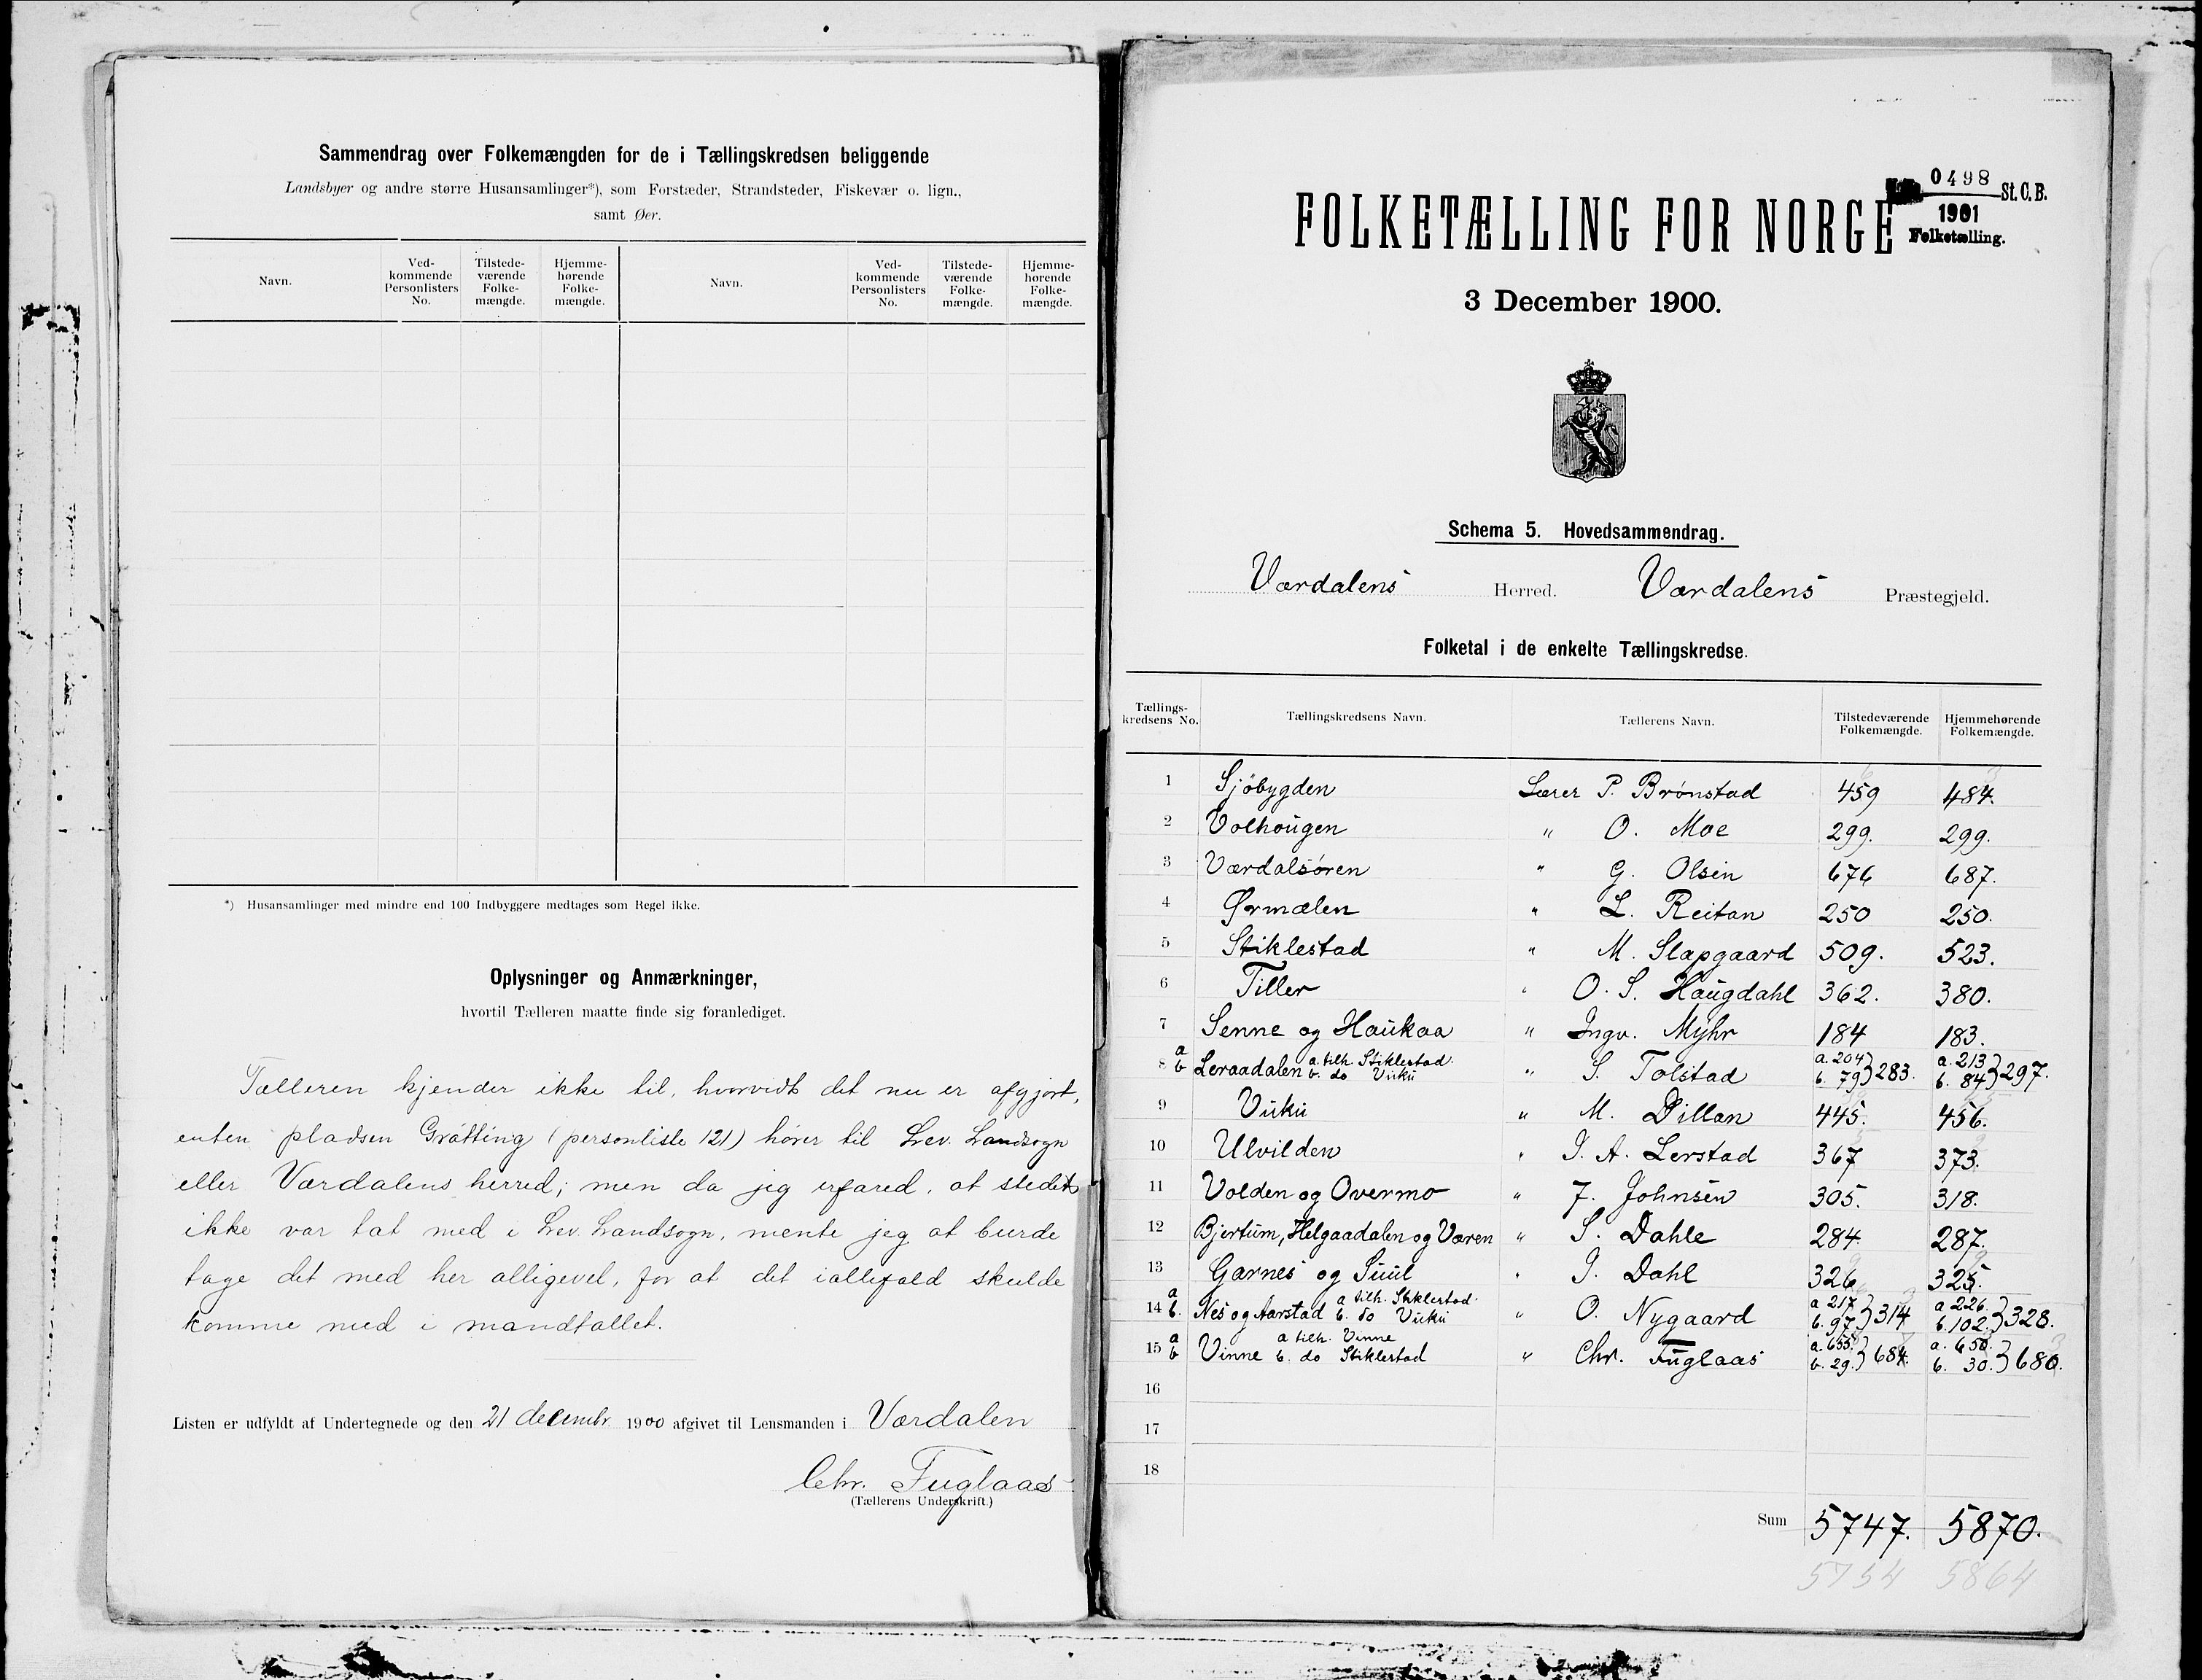 Sammendrag over Folkemængden for de i Tællingskredsen beliggende
Landsbyer og andre større Husansamlinger*), som Forstæder, Strandsteder, Fiskevær o. lign.,
samt Øer.
Navn. Ved-kommende Personlisters No. Tilstede-værende Folke-mængde. Hjemme-hørende Folke-mængde. Navn. Ved-kommende Personlisters No. Tilstede-værende Folke-mængde. Hjemme-hørende Folke-mængde.
*) Husansamlinger med mindre end 100 Indbyggere medtages som Regel ikke.
Oplysninger og Anmærkninger,
hvortil Tælleren maatte finde sig foranlediget.
Tælleren kjender ikke til, hvorvidt det nu er afgjort,
enten pladsen Gråtting (personliste 121) hører til Lev. Landsogn
eller Værdalens herred; men da jeg erfared, at stedet
ikke var tat med i Lev. Landsogn, mente jeg at burde
tage det med her alligevel, for at det iallefald skulde
komme med i mandtallet.
Listen er udfyldt af Undertegnede og den 21 decembr 1900 afgivet til Lensmanden i Værdalen
Chr. Fuglaas
(Tællerens Underskrift.)
0498 St. C. B.
1901
Folketælling.
FOLKETÆLLING FOR NORGE
3 December 1900.
Schema 5. Hovedsammendrag.
Værdalens Herred. Værdalens Præstegjeld.
Folketal i de enkelte Tællingskredse.
Tællings-kredsens No. Tællingskredsens Navn. Tællerens Navn. Tilstedeværende Folkemængde. Hjemmehørende Folkemængde.
1 Sjöbygden Lærer P. Brønstad 459 484.
2 Volhougen " O. Moe 299. 299.
3 Værdalsøren " G. Olsen 676 687.
4 Ørmælen " L. Reitan 250 250.
5 Stiklestad " M. Slapgaard 509. 523.
6 Tiller " O. S. Haugdahl 362. 380.
7 Senne og Haukaa " Ingv. Myhr 184 183.
8 a b Leraadalen a. tilh. Stiklestad. b. do Vuku " S. Tolstad a. 204 b. 79 } 283. a. 213 b. 84 } 297.
9 Vuku " M. Dillan 445. 456.
10 Ulvilden " I. A. Lerstad 367 373.
11 Volden og Overmo " J. Johnsen 305. 318.
12 Bjertum, Helgaadalen og Væren " S. Dahle 284. 287.
13 Garnes og Suul " I. Dahl 326 325.
14 a b. Nes og Aarstad a tilh. Stiklestad. b. do Vuku " O. Nygaard a 217 b. 97 } 314 a 226. b. 102. } 328.
15 a b Vinne a tilh. Vinne b. do Stiklestad " Chr. Fuglaas a. 655. b. 29. } 684. a. 650. b. 30. } 680.
16
17
18
Sum 5747. 5870.
5754 5864